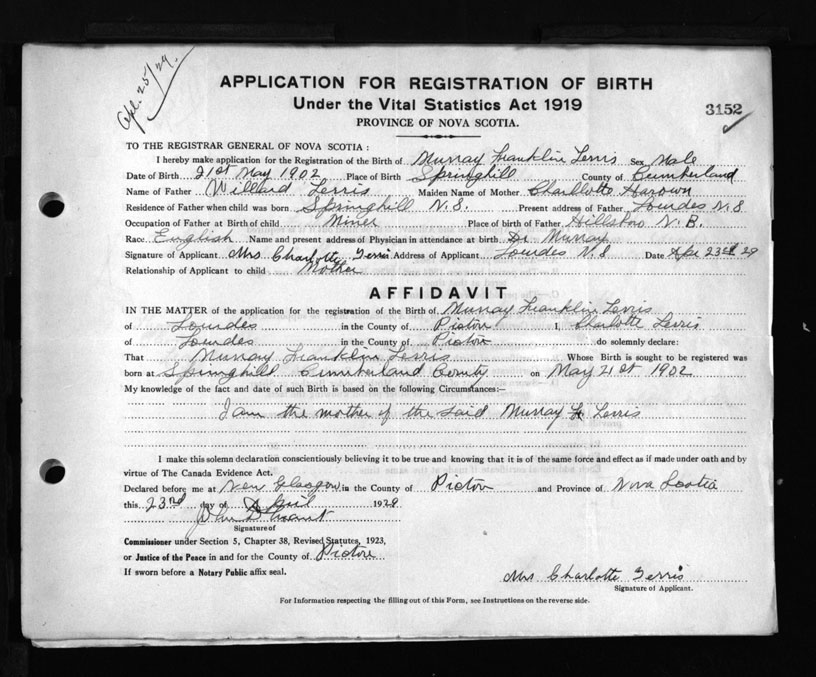 Apl. 25/29.
APPLICATION FOR REGISTRATION OF BIRTH
Under the Vital Statistics Act 1919
PROVINCE OF NOVA SCOTIA.
3152
TO THE REGISTRAR GENERAL OF NOVA SCOTIA:
I hereby make application for the Registration of the Birth of Murray Franklin Terris Sex Male
Date of Birth 21st May 1902 Place of Birth Springhill County of Cumberland
Name of Father Willard Terris Maiden Name of Mother Charllotte
Residence of Father when child was born Springhill N.S. Present address of Father Lourdes N.S
Occupation of Father at Birth of child Miner Place of birth of Father Hillsboro N.B.
Race English Name and present address of Physician in attendance at birth Dr Murray
Signature of Applicant Mrs Charlotte Terris Address of Applicant Lourdes N.S Date Apr 23rd 29
Relationship of Applicant to child Mother
AFFIDAVIT
IN THE MATTER of the application for the registration of the Birth of Murray Franklin Terris
of Lourdes in the County of Pictou I, Charlotte Terris
of Lourdes in the County of Pictou do solemnly declare:
That Murray Franklin Terris Whose Birth is sought to be registered was
born at Springhill Cumberland County on May 21st 1902
My knowledge of the fact and date of such Birth is based on the following Circumstances:—
I am the mother of the said Murray F. Terris
I make this solemn declaration conscientiously believing it to be true and knowing that it is of the same force and effect as if made under oath and by
virtue of The Canada Evidence Act.
Declared before me at New Glasgow in the County of Pictou and Province of Nova Scotia
this 23rd day of April 1929
John D Grant
Signature of
Commissioner under Section 5, Chapter 38, Revised Statutes, 1923,
or Justice of the Peace in and for the County of Pictou
If sworn before a Notary Public affix seal.
Mrs Charlotte Terris
Signature of Applicant.
For Information respecting the filling out of this Form, see Instructions on the reverse side.